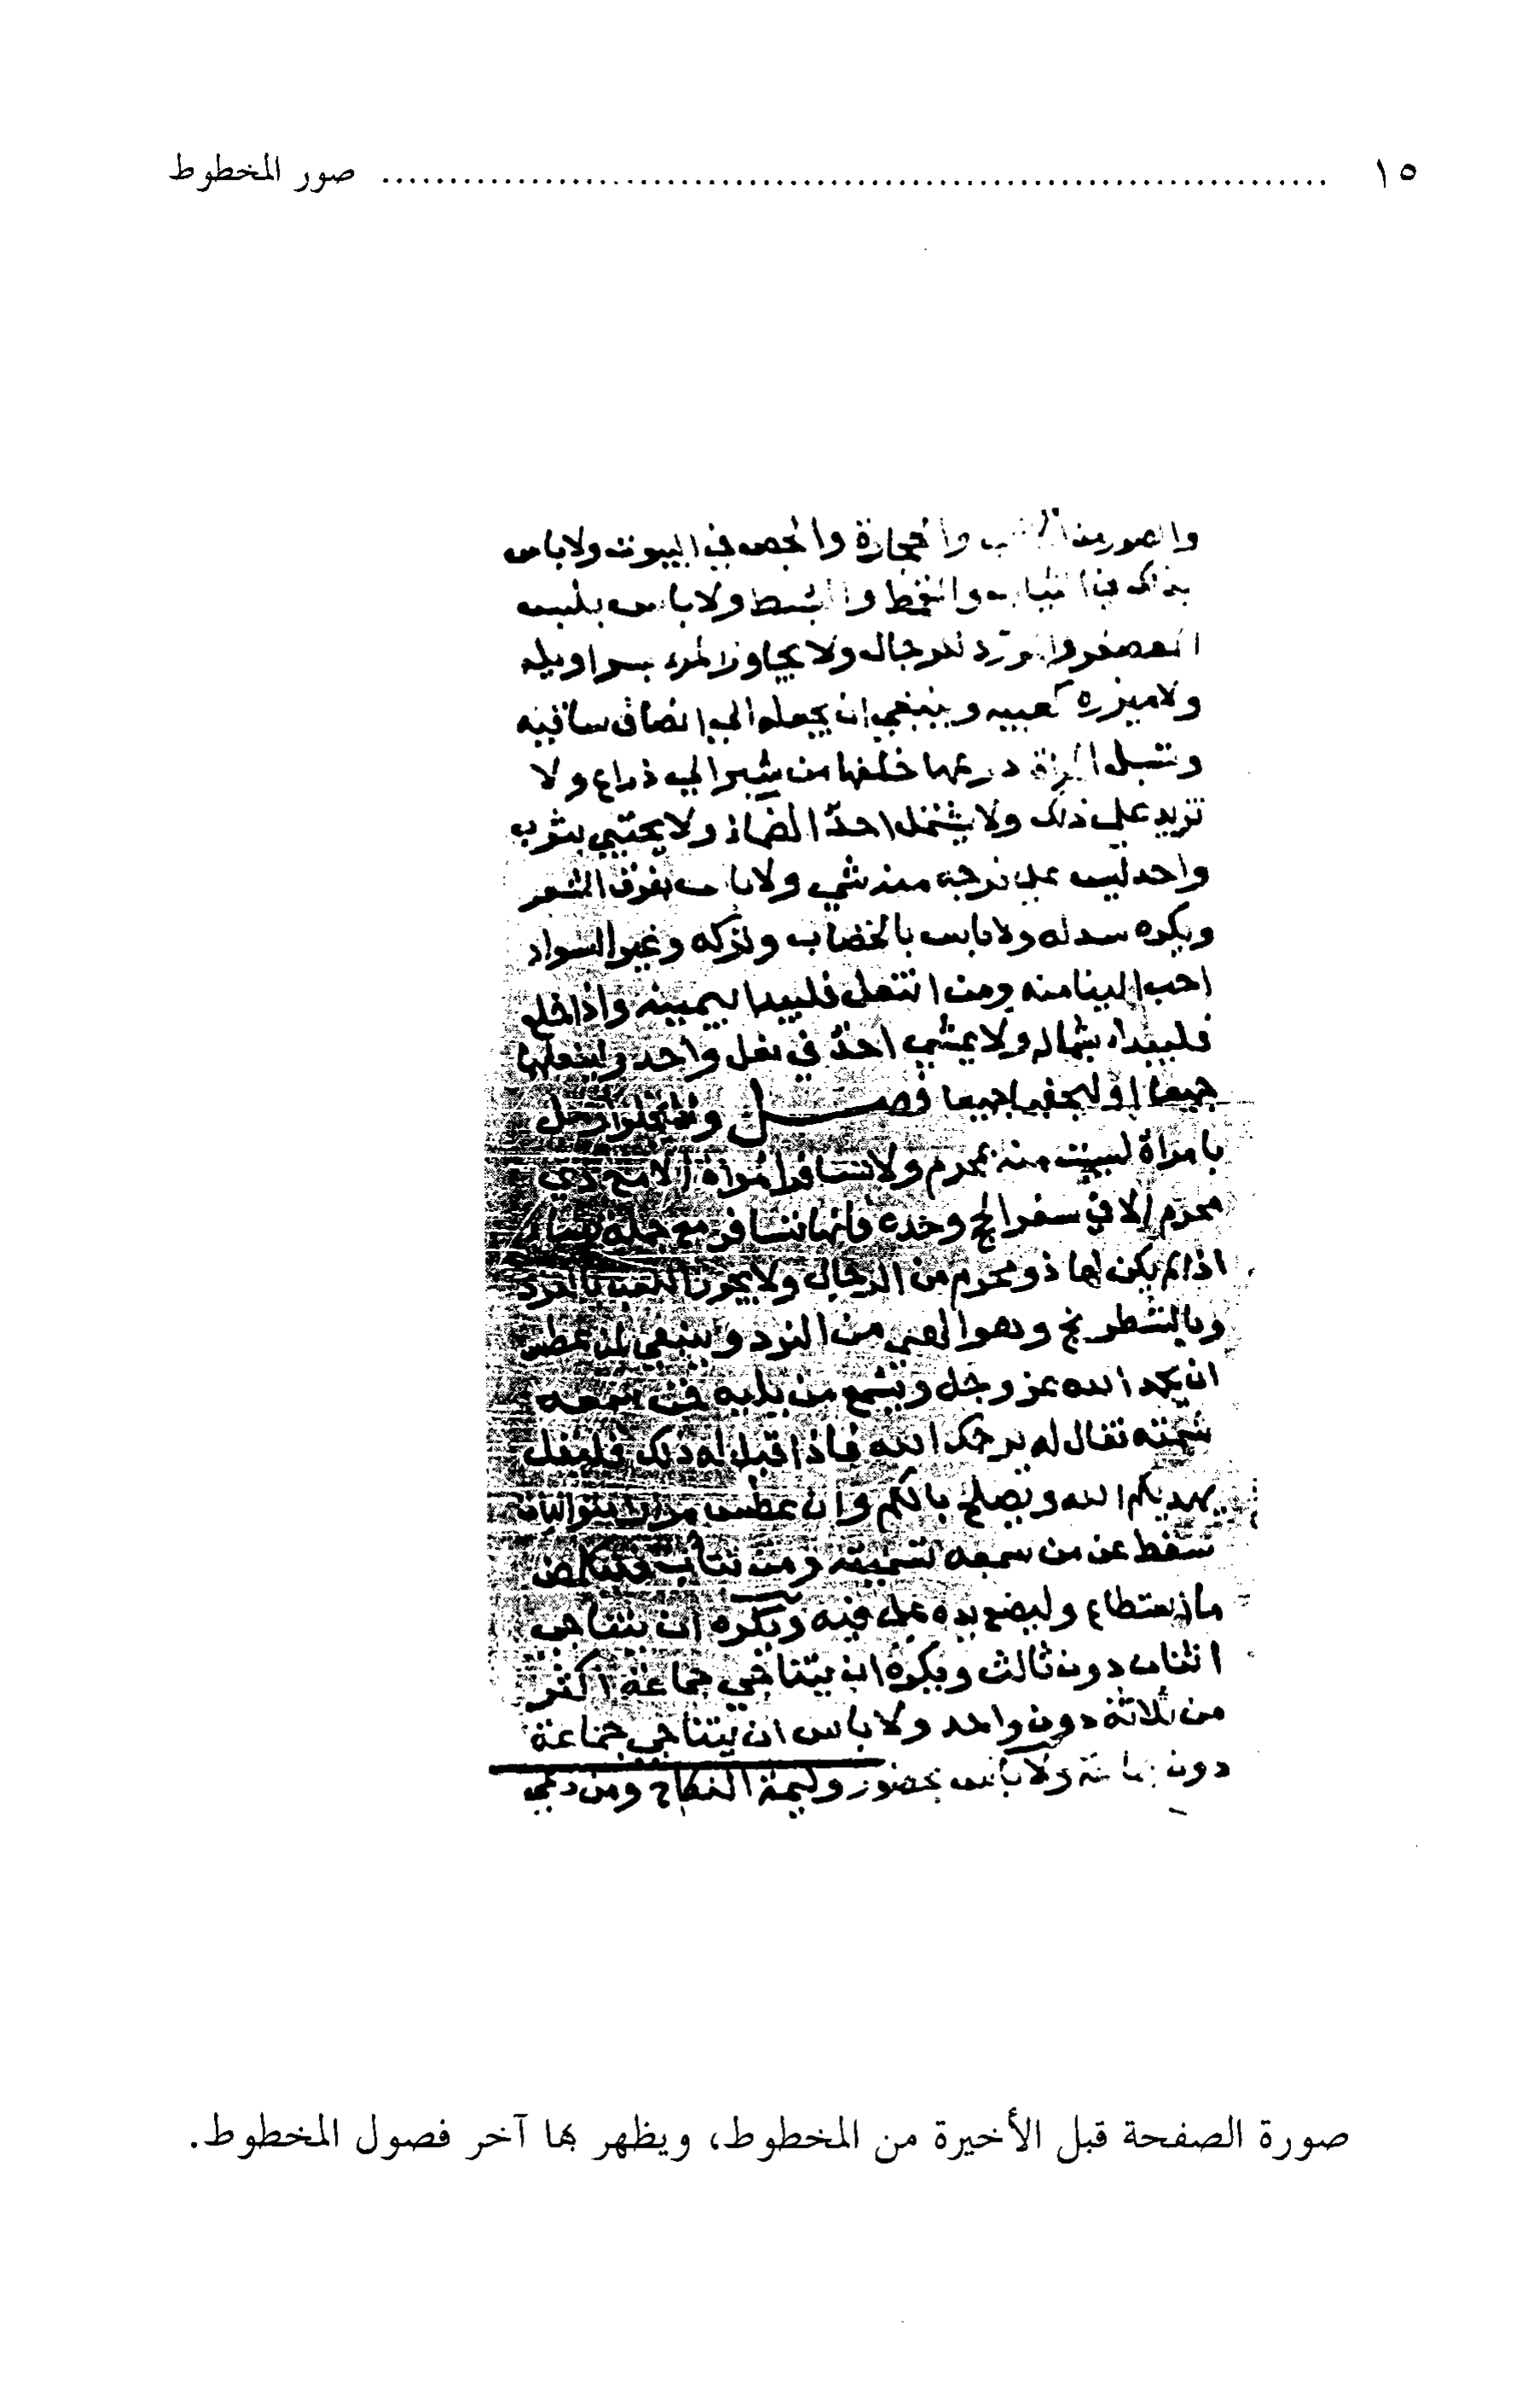 ١٥ ........................................................................ صور المخطوط
والصور في الخشب والحجارة والجص في البيوت ولا باس
بذلك في الثياب والنمط والبسط ولا باس بلبس
المعصفر والمورّد للرجال ولا يجاوز المرء بسراويله
ولا ميزره كعبيه وينبغي ان يجعله الى انصاف ساقيه
وتسبل المراة درعها خلفها من شبر الى ذراع ولا
تزيد على ذلك ولا يشتمل احدٌ الصماء ولا يحتبي بثوب
واحد ليس على فرجه منه شي ولا باس بفرق الشعر
ويكره سدله ولا باس بالخضاب وتركه وغير السواد
احب الينا منه ومن انتعل فليبدا بيمينه واذا خلع
فليبدا بشماله ولا يمشي احدٌ في نعل واحد ولينعلهما
جميعا او ليحفهما جميعا فصل ولا يخلو رجل
بامراة ليست منه بمحرم ولا تسافر امراة الا مع ذي
محرم الا في سفر الحج وحده فانها تسافر مع جملة النساء
اذا لم يكن لها ذو محرم من الرجال ولا يجوز اللعب بالنرد
وبالشطرنج وهو الهى من النرد وينبغي لمن عطس
ان يحمد الله عز وجل ويسمع من يليه فمن سمعه
شمته فقال له يرحمك الله فاذا قيل له ذلك فليقل
يهديكم الله ويصلح بالكم وان عطس مرارا متواليات
سقط عن من سمعه تشميته ومن تثاب فليكظم
ما استطاع وليضع يده على فيه ويكره ان يتناجى
اثنان دون ثالث ويكره ان يتناجى جماعة اكثر
من ثلاثة دون واحد ولا باس ان يتناجى جماعة
دون جماعة ولا باس بحضور وليمة النكاح ومن دعي
صورة الصفحة قبل الأخيرة من المخطوط، ويظهر بها آخر فصول المخطوط.